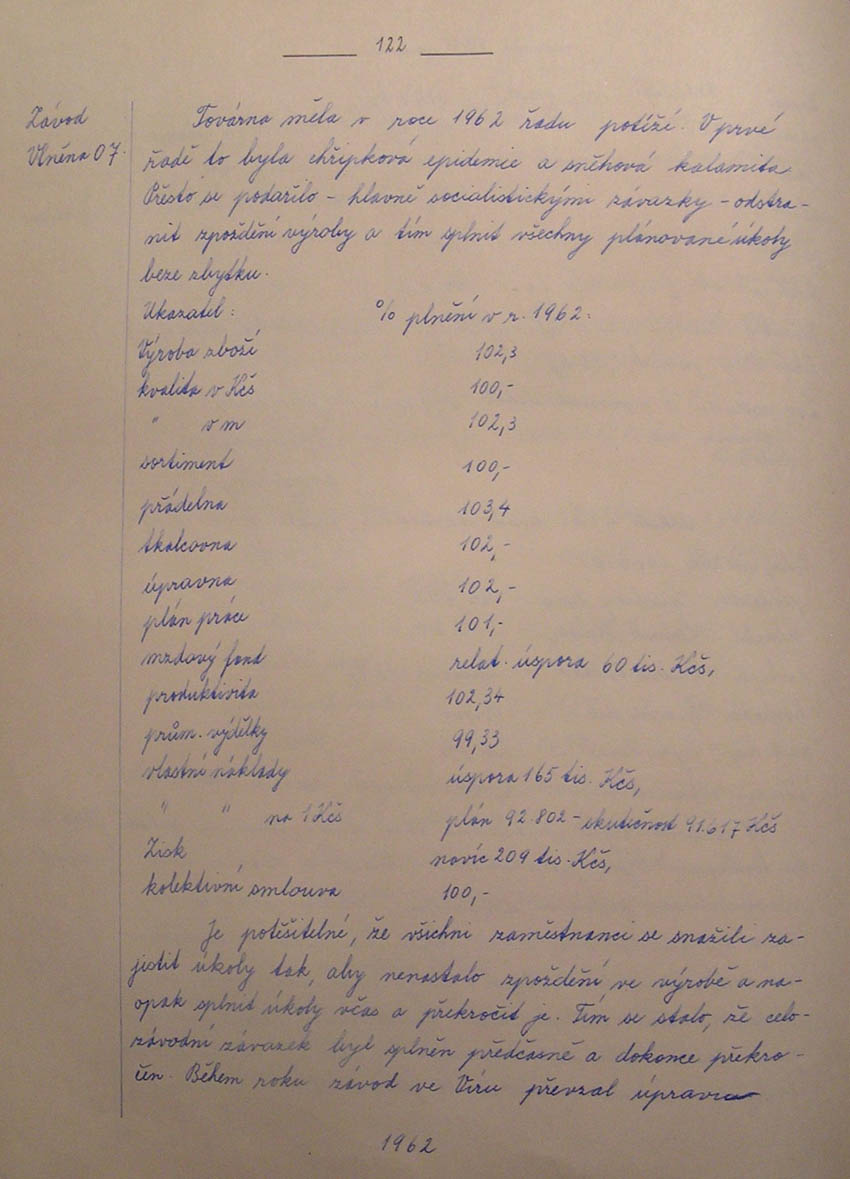 122
Závod
Vlněna 07.
Továrna měla v roce 1962 řadu potíží. V prvé
řadě to byla chřipková epidemie a sněhová kalamita.
Přesto se podařilo - hlavně socialistickými závazky - odstra-
nit zpoždění výroby a tím splnit všechny plánované úkoly
beze zbytku.
Ukazatel: % plnění v r. 1962:
Výroba zboží 102,3
kvalita v Kčs 100,-
" v m 102,3
sortiment 100,-
přádelna 103,4
tkalcovna 102,-
úpravna 102,-
plán práce 101,-
mzdový fond relat. úspora 60 tis. Kčs,
produktivita 102,34
prům. výdělky 99,33
vlastní náklady úspora 165 tis. Kčs,
" " na 1 Kčs plán 92.802 - skutečnost 91.617 Kčs
Zisk navíc 209 tis. Kčs,
kolektivní smlouva 100,-
Je potěšitelné, že všichni zaměstnanci se snažili za-
jistit úkoly tak, aby nenastalo zpoždění ve výrobě a na-
opak splnit úkoly včas a překročit je. Tím se stalo, že celo-
závodní závazek byl splněn předčasně a dokonce překro-
čen. Během roku závod ve Víru převzal úpravu
1962